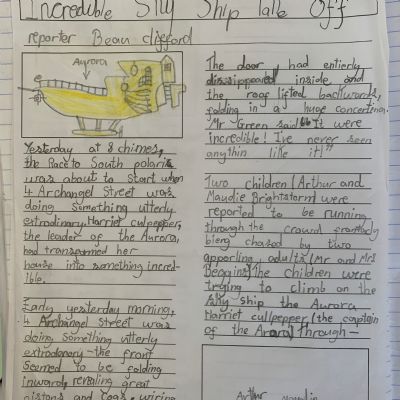 Incredible Sky Ship Take Off
reporter Beau clifford
Aurora
Yesterday at 8 chimes,
the Race to South polaris
was about to start when
4 Archangel Street was
doing something utterly
extrodinary. Harriet culpepper,
the leader of the Aurora,
had transformed her
house into something incred-
ible.
Early yesterday morning,
4 Archangel Street was
doing something utterly
extrodonary - the front
Seemed to be folding
inward, revealing great
pistons and cogs, wiring
The door had entierly
dissippeared inside and
the roof lifted backwards,
folding in a huge concertina.
Mr Green said "It were
incredible! I've never seen
anythin like it!"
Two children (Arthur and
Maudie Brightstorm) were
reported to be running
through the crawd frantically
bieng chased by two
apporling adults (Mr and Mrs
Beggins) the children were
trying to climb on the
sky ship the Aurora
Harriet culpepper (the captain
of the Arora) through-
Arthur